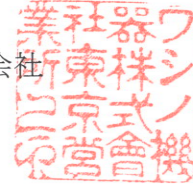 会社
ワシノ機
器株式會
社東京營
業所之印